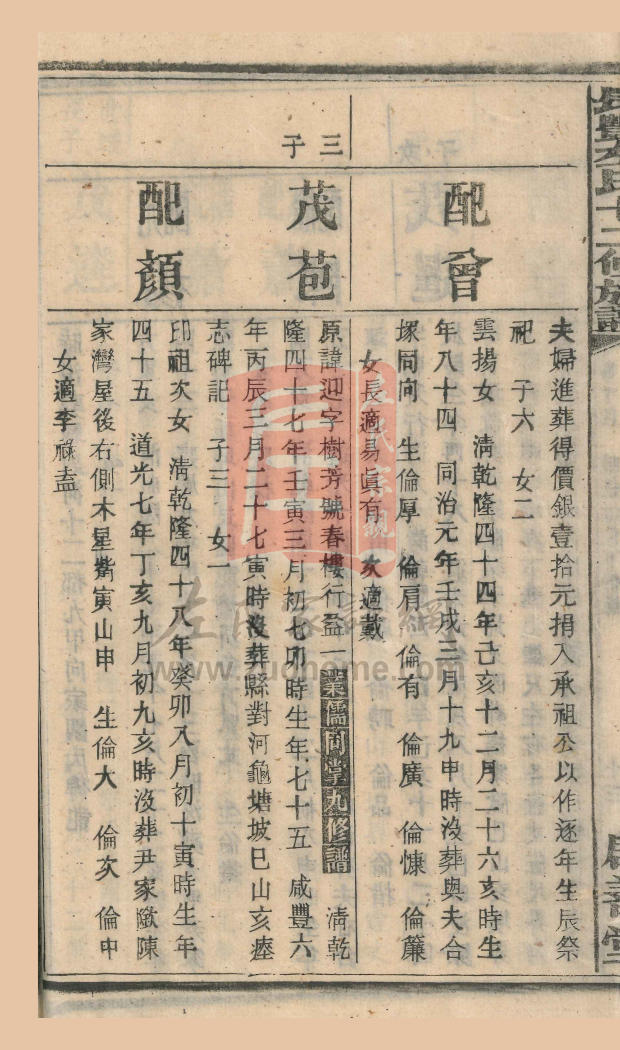 夫婦進葬得價銀壹拾元捐入承祖公以作逐年生辰祭
祀　子六　女二
配曾
雲揚女　清乾隆四十四年己亥十二月二十六亥時生
年八十四　同治元年壬戌三月十九申時沒葬與夫合
塚同向　生倫厚　倫肩　倫有　倫廣　倫慷　倫簾
女長適易眞有　次適戴
三子
茂苞
原諱迎字樹芳號春樓行盈一業儒同掌九修譜　清乾
隆四十七年壬寅三月初七卯時生年七十五　咸豐六
年丙辰三月二十七寅時沒葬縣對河龜塘坡巳山亥塟
志碑記　子三　女一
配顏
印祖次女　清乾隆四十八年癸卯八月初十寅時生年
四十五　道光七年丁亥九月初九亥時沒葬尹家陳
家灣屋後右側木星觜寅山申　生倫大　倫次　倫中
女適李祿盍
www.zuohome.com